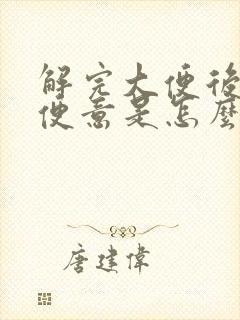 解完大便後
便意是怎麼
唐建偉